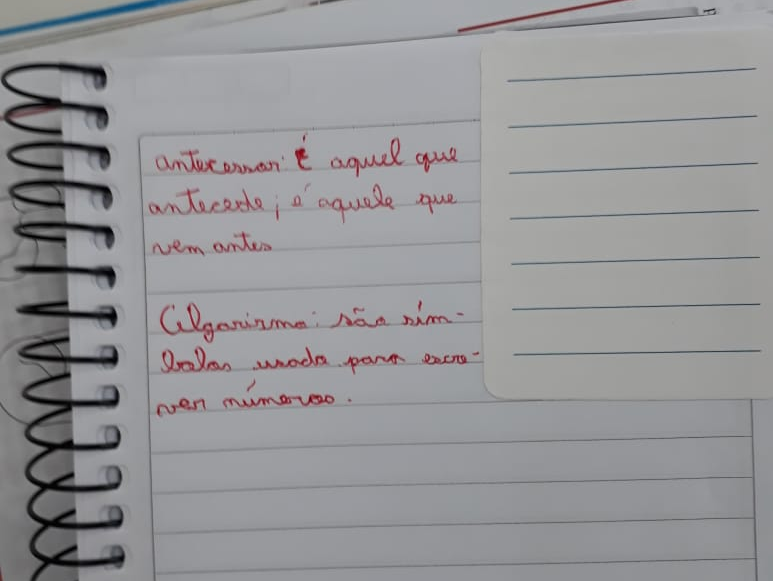 antecessor: É aquel que
antecede; é aquele que
vem antes
Algarismo: são sím-
bolos usado para escre-
ver números.